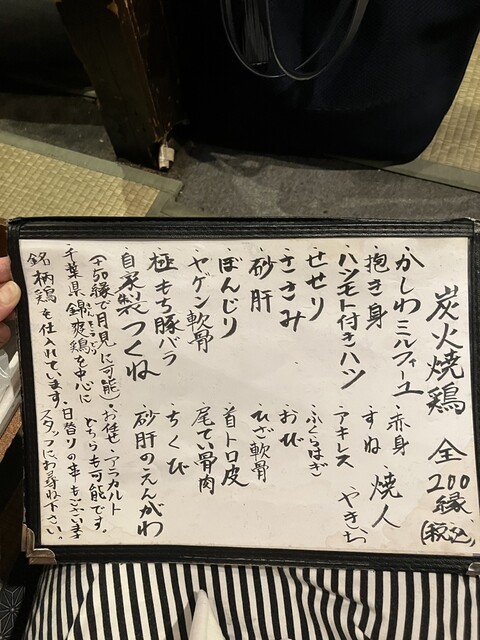 炭火焼鶏 全200縁(税込)
かしわミルフィーユ 赤身 焼人
抱き身 すね やきいち
ハツモト付きハツ アキレス
せせり ふくらはぎ
ささみ おび
砂肝 ひざ軟骨
ぼんじり 首トロ皮
ヤゲン軟骨 尾てい骨肉
極もち豚バラ ちくび
自家製つくね 砂肝のえんがわ
(+50縁で月見に可能) お任せ・アラカルト
千葉県錦爽鶏を中心に どちらも可能です。
きんそうどり
銘柄鶏を仕入れています。日替りの串もございます
スタッフにお尋ね下さい。